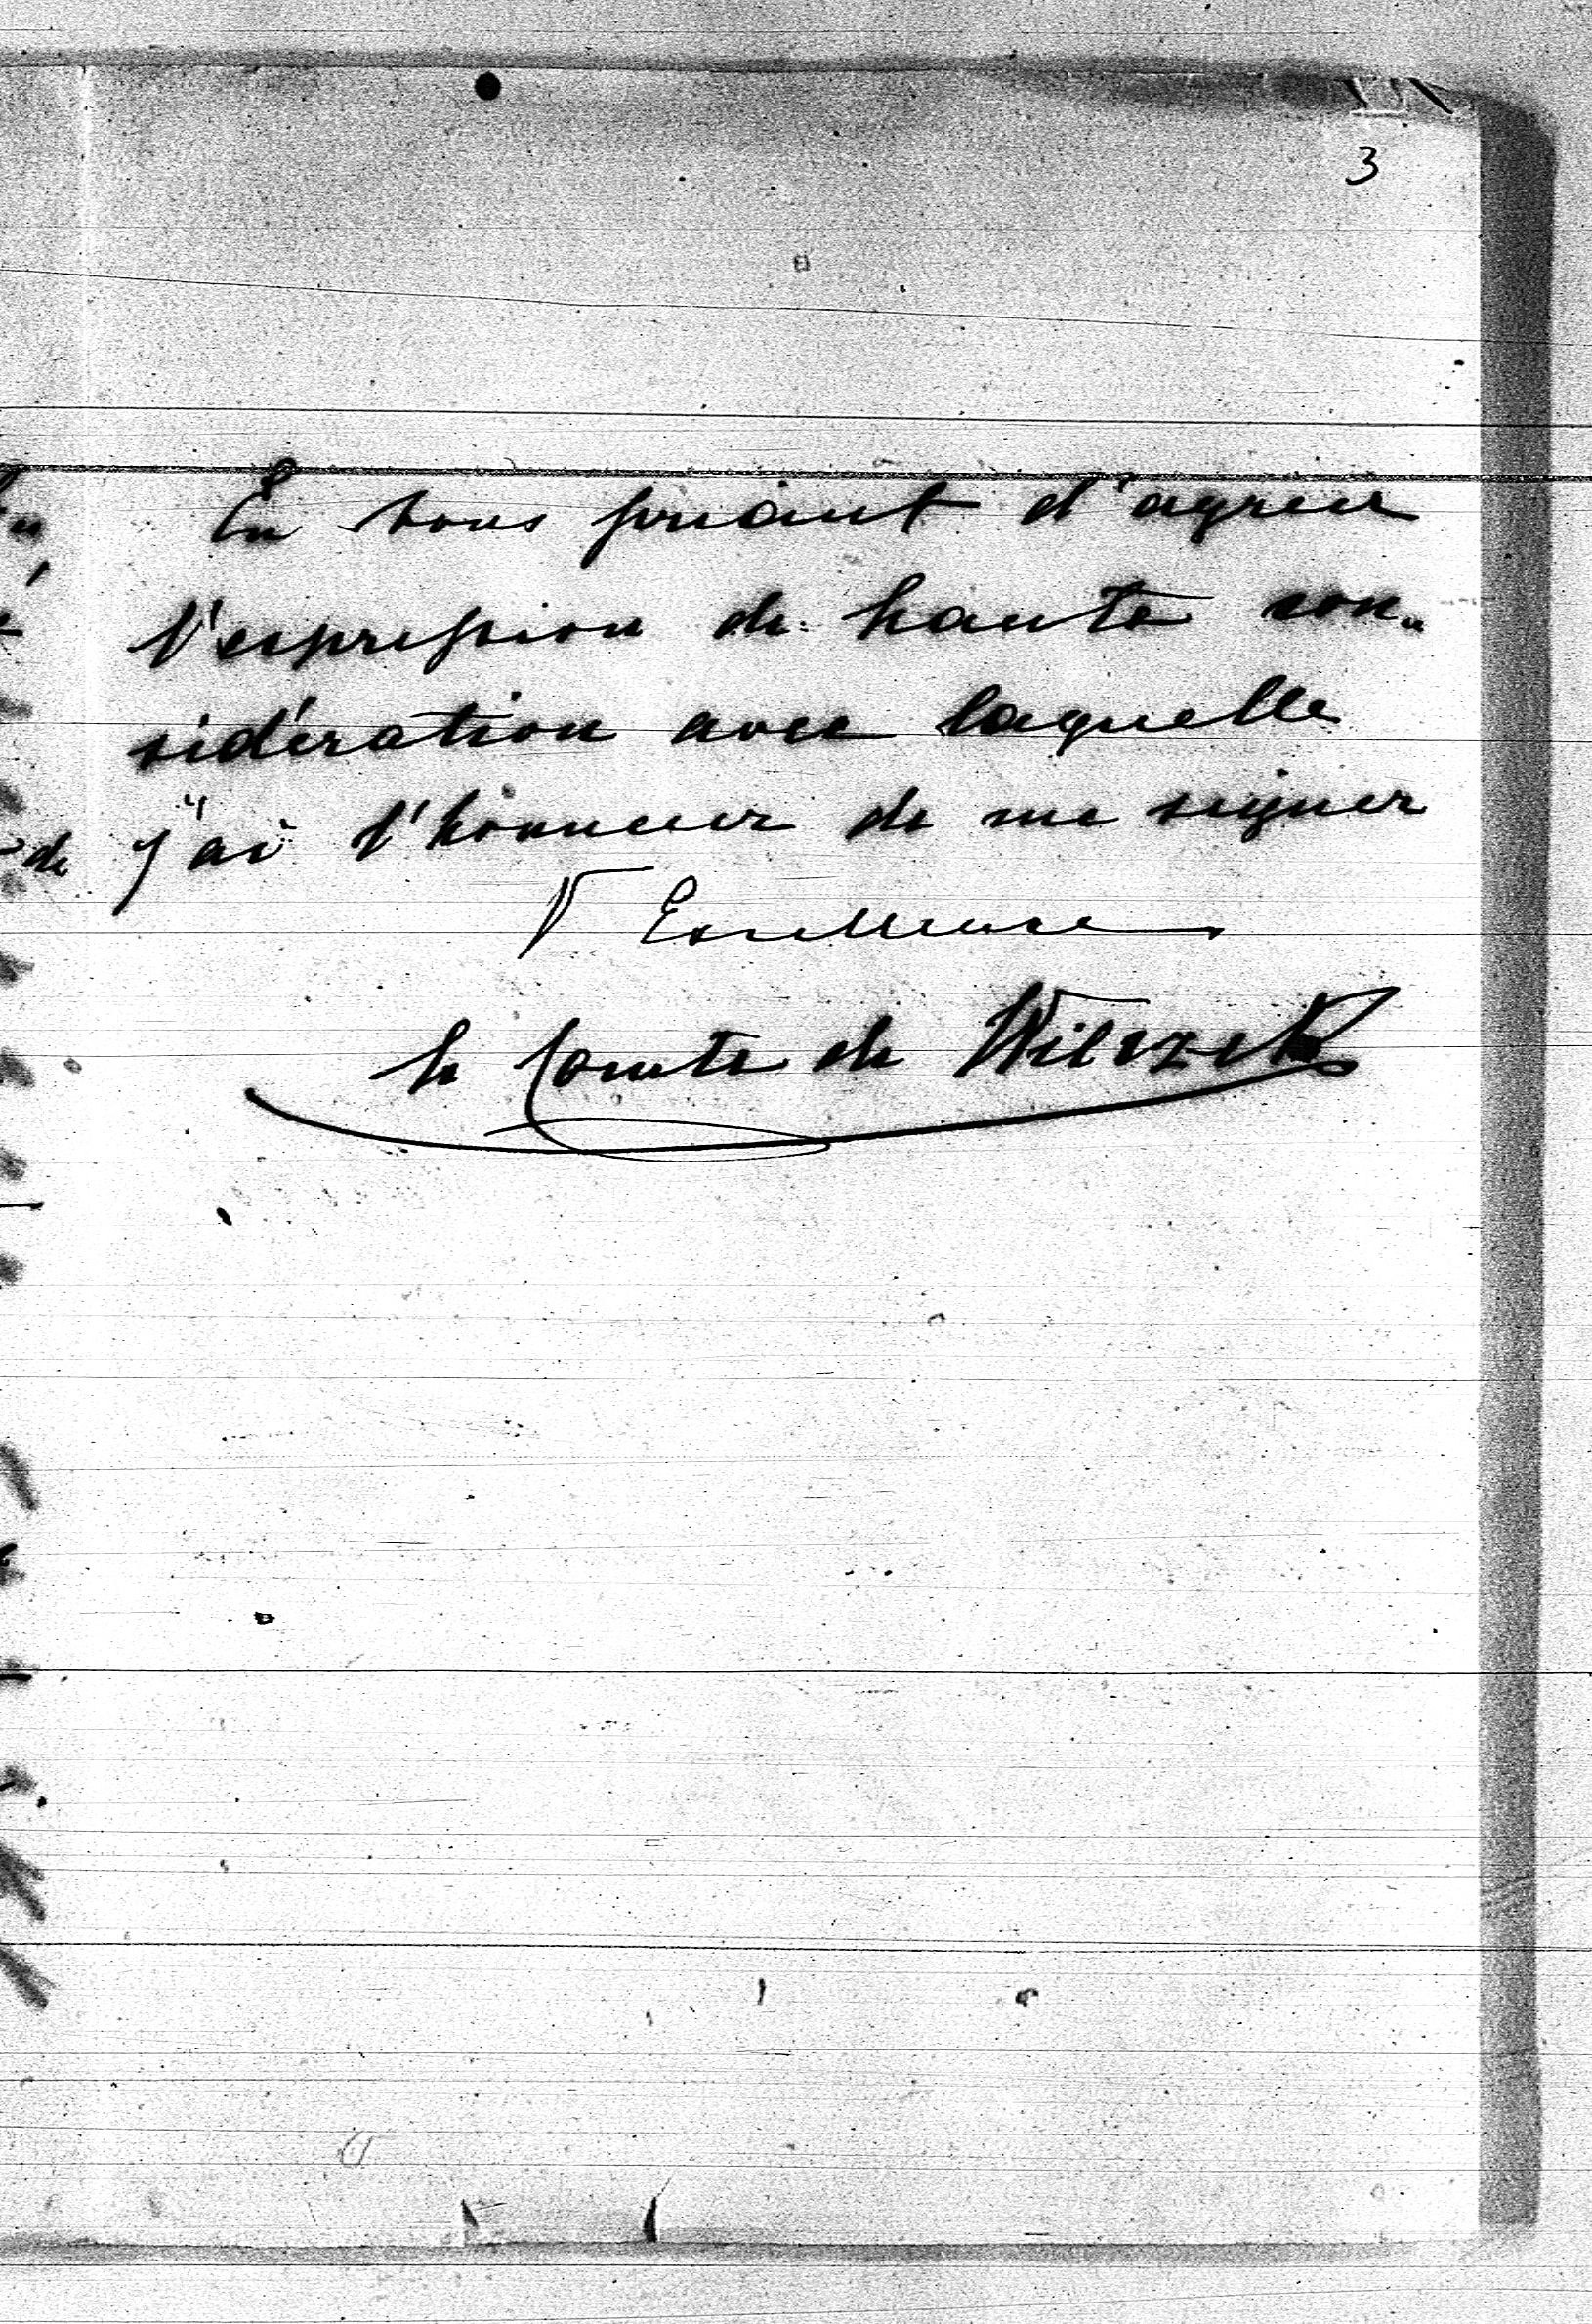 3
En vous priant d'agreer
l'expression de haute con„
sidération avec laquelle
j'ai l'honneur de me signer
V Excellence
le Comte de Wilczek
de